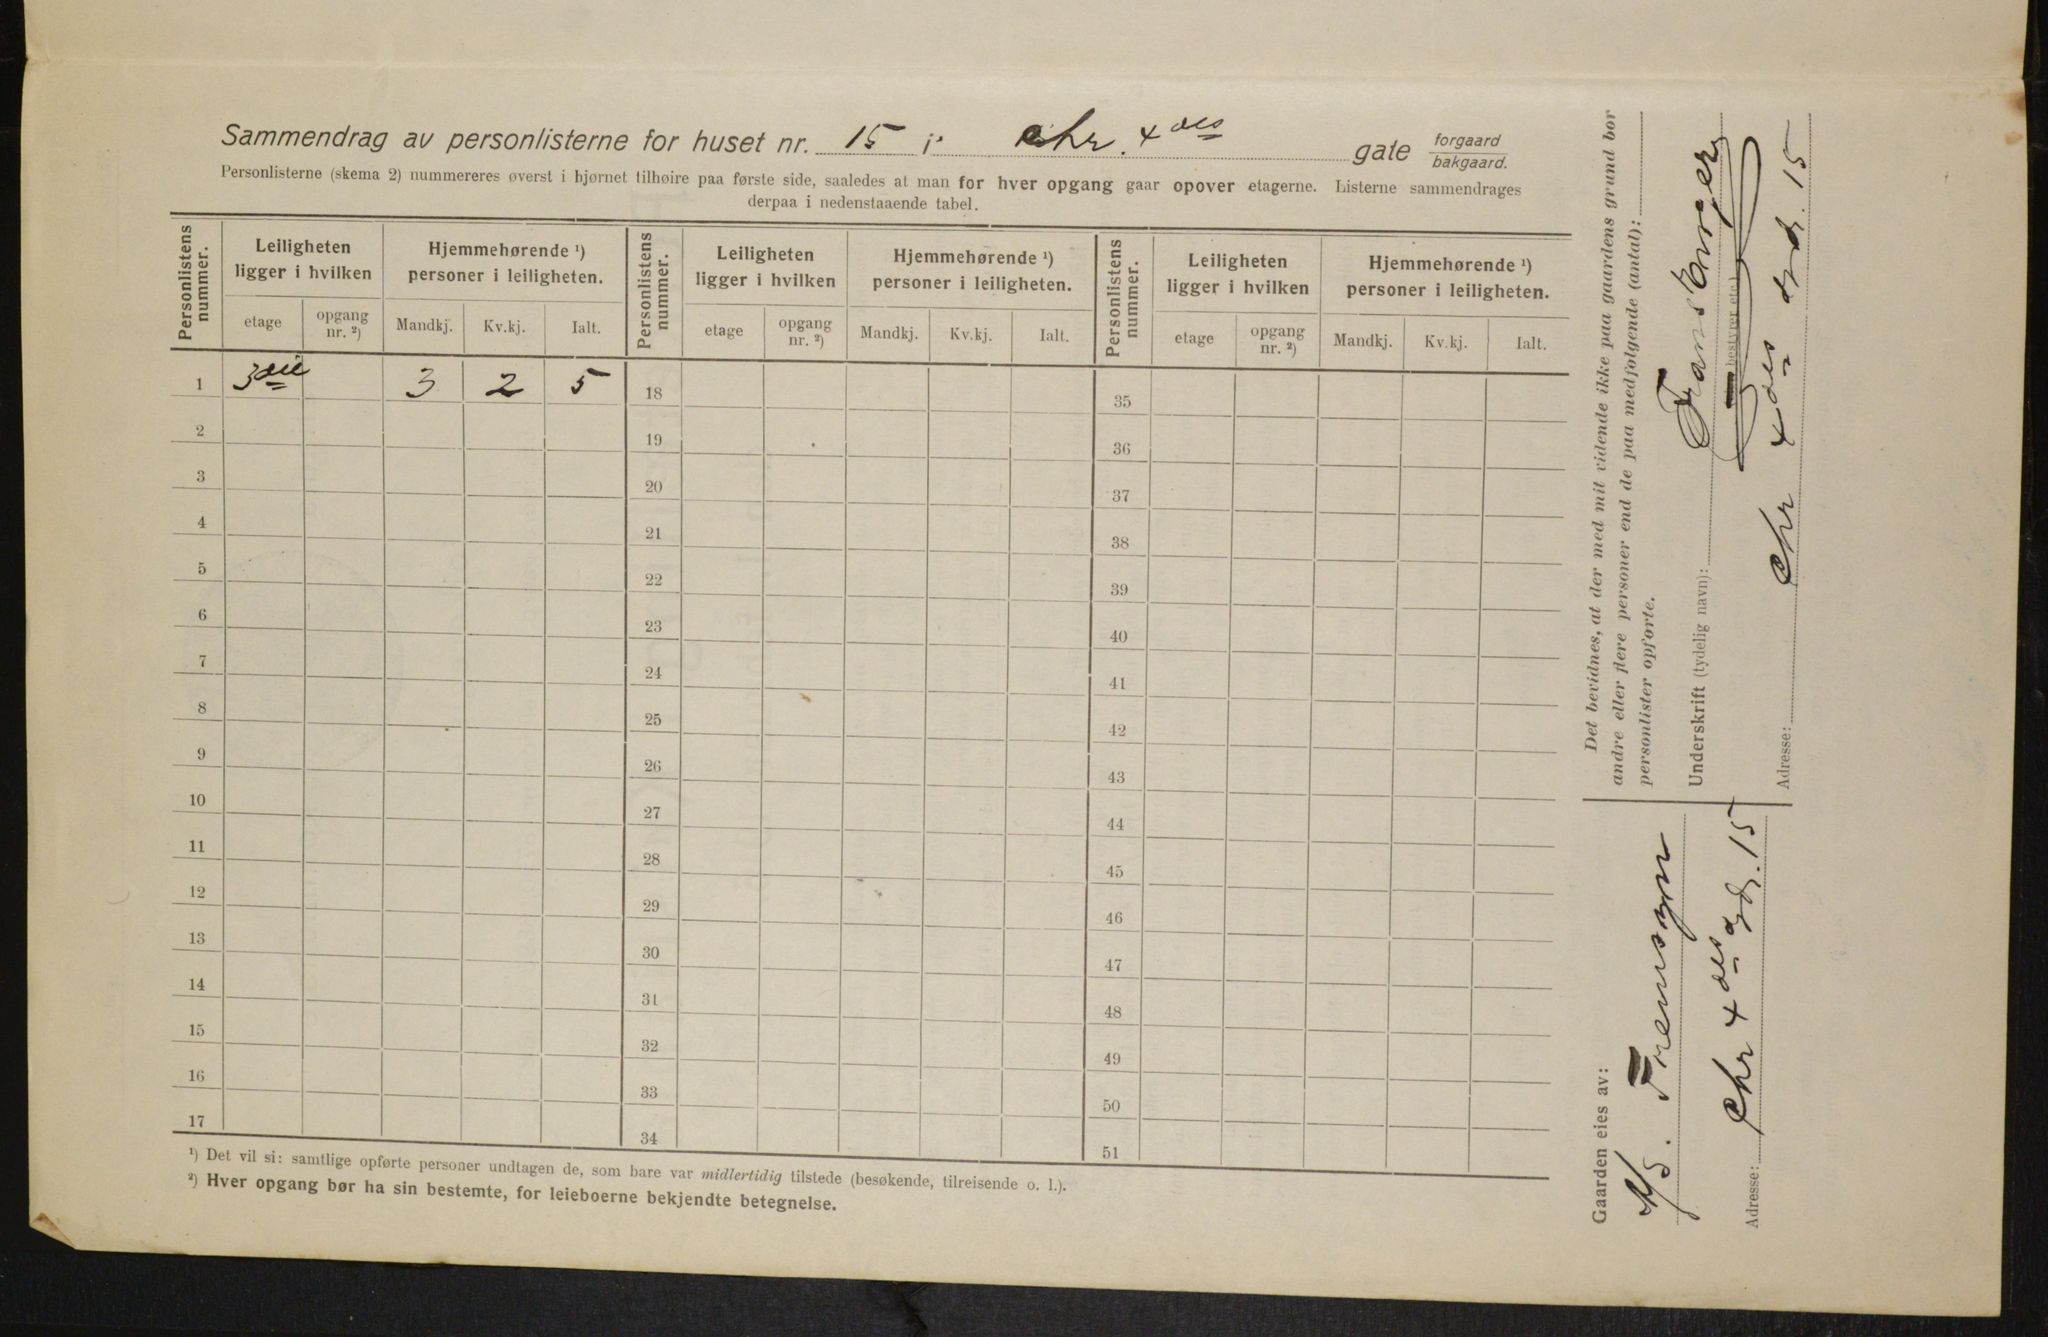 Sammendrag av personlisterne for huset nr. 15 i Chr. 4des gate forgaard bakgaard.
Personlisterne (skema 2) nummereres øverst i hjørnet tilhøire paa første side, saaledes at man for hver opgang gaar opover etagerne. Listerne sammendrages
derpaa i nedenstaaende tabel.
Personlistens nummer. Leiligheten ligger i hvilken Hjemmehørende ¹) personer i leiligheten. Personlistens nummer. Leiligheten ligger i hvilken Hjemmehørende ¹) personer i leiligheten. Personlistens nummer. Leiligheten ligger i hvilken Hjemmehørende ¹) personer i leiligheten.
etage opgang nr. ²) Mandkj. Kv.kj. Ialt. etage opgang nr. ²) Mandkj. Kv.kj. Ialt. etage opgang nr. ²) Mandkj. Kv.kj. Ialt.
1 3die 3 2 5 18 35
2 19 36
3 20 37
4 21 38
5 22 39
6 23 40
7 24 41
8 25 42
9 26 43
10 27 44
11 28 45
12 29 46
13 30 47
14 31 48
15 32 49
16 33 50
17 34 51
¹) Det vil si: samtlige opførte personer undtagen de, som bare var midlertidig tilstede (besøkende, tilreisende o. l.).
²) Hver opgang bør ha sin bestemte, for leieboerne bekjendte betegnelse.
Det bevidnes, at der med mit vidende ikke paa gaardens grund bor
andre eller flere personer end de paa medfølgende (antal):
personlister opførte.
Underskrift (tydelig navn): Frans
bestyrer etc.)
Adresse: Chr 4des gd. 15
Gaarden eies av:
A/S.
Adresse: Chr 4des gd. 15